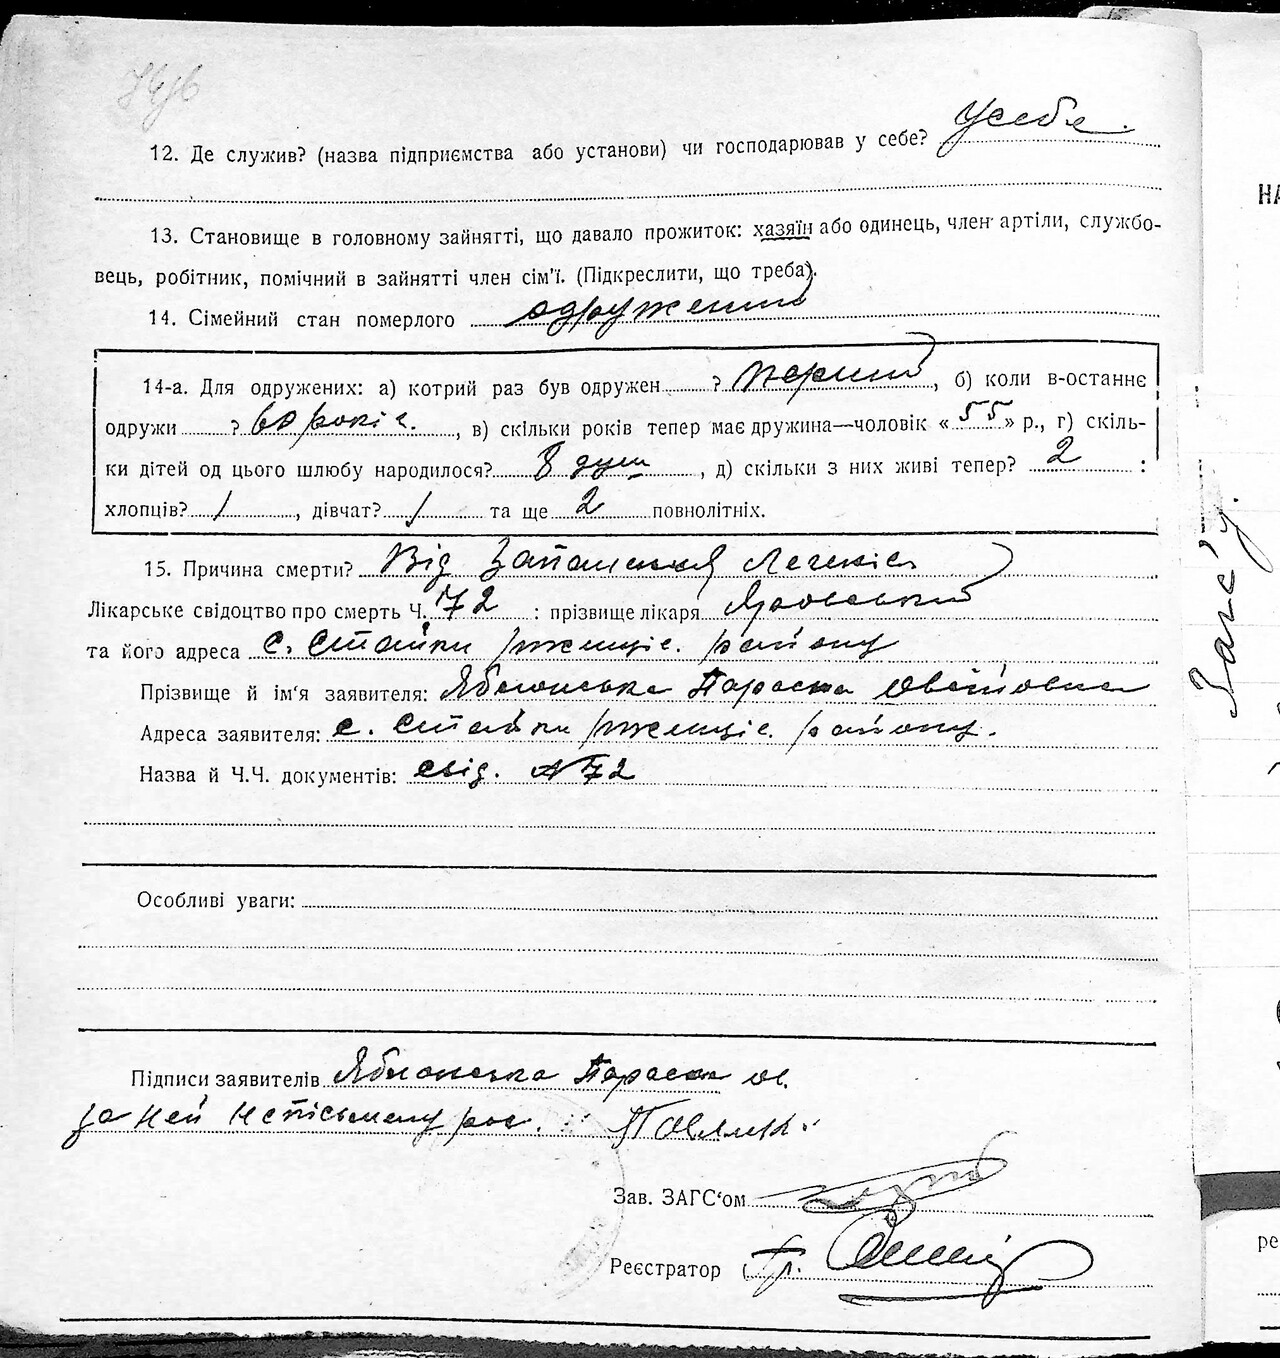 12. Де служив? (назва підприємства або установи) чи господарював у себе? у себе.
13. Становище в головному зайнятті, що давало прожиток: хазяїн або одинець, член артіли, службо-
вець, робітник, помічний в зайнятті член сім'ї. (Підкреслити, що треба).
14. Сімейний стан померлого одружений
14-а. Для одружених: а) котрий раз був одружен ? перший, б) коли в-останнє
одружи ? 60 років., в) скільки років тепер має дружина—чоловік «55» р., г) скіль-
ки дітей од цього шлюбу народилося? 8 душ, д) скільки з них живі тепер? 2 :
хлопців? /, дівчат? / та ще 2 повнолітніх.
15. Причина смерти? Від Запалення Легенів
Лікарське свідоцтво про смерть Ч. 72 : прізвище лікаря
та його адреса с. Стайки ржищів. району
Прізвище й ім'я заявителя: Яблонська Параска
Адреса заявителя: с. Стайки ржищів. району.
Назва й Ч.Ч. документів: свід. №72
Особливі уваги:
Підписи заявителів Яблонська Параска
за неї неписьменну рос. Павлик
Зав. ЗАГС'ом
Реєстратор
НА
Зап. у.
ре